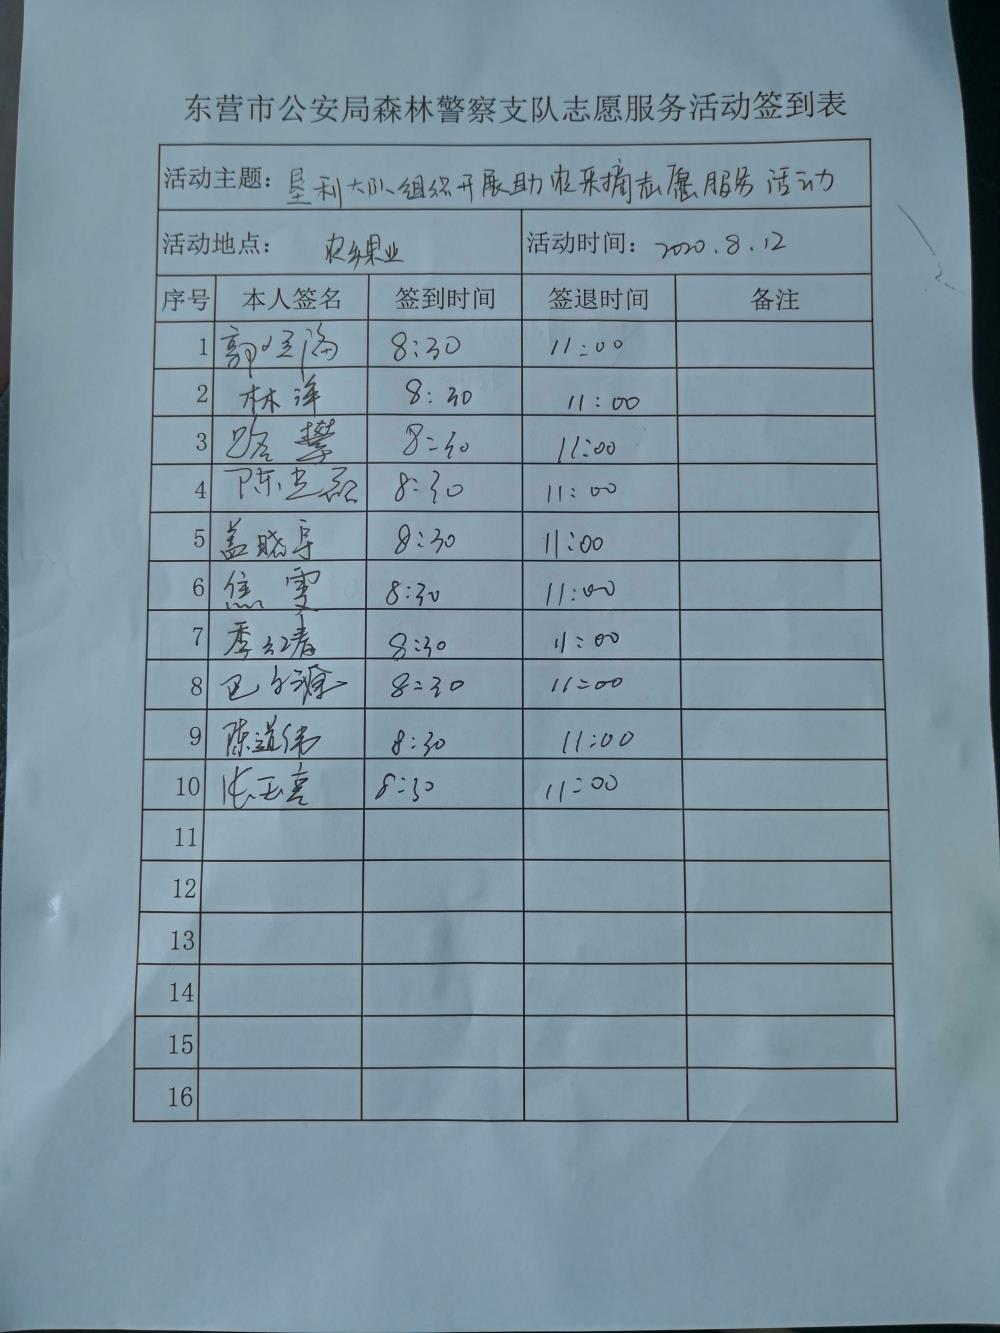 东营市公安局森林警察支队志愿服务活动签到表
活动主题：垦利大队组织开展助农采摘志愿服务活动
活动地点：农乡果业 活动时间：2020.8.12
序号 本人签名 签到时间 签退时间 备注
1 郭 海 8:30 11:00
2 林洋 8:30 11:00
3 路攀 8:30 11:00
4 陈 磊 8:30 11:00
5 盖晓 8:30 11:00
6 焦雯 8:30 11:00
7 季红青 8:30 11:00
8 巴 源 8:30 11:00
9 陈道伟 8:30 11:00
10 张玉亮 8:30 11:00
11
12
13
14
15
16